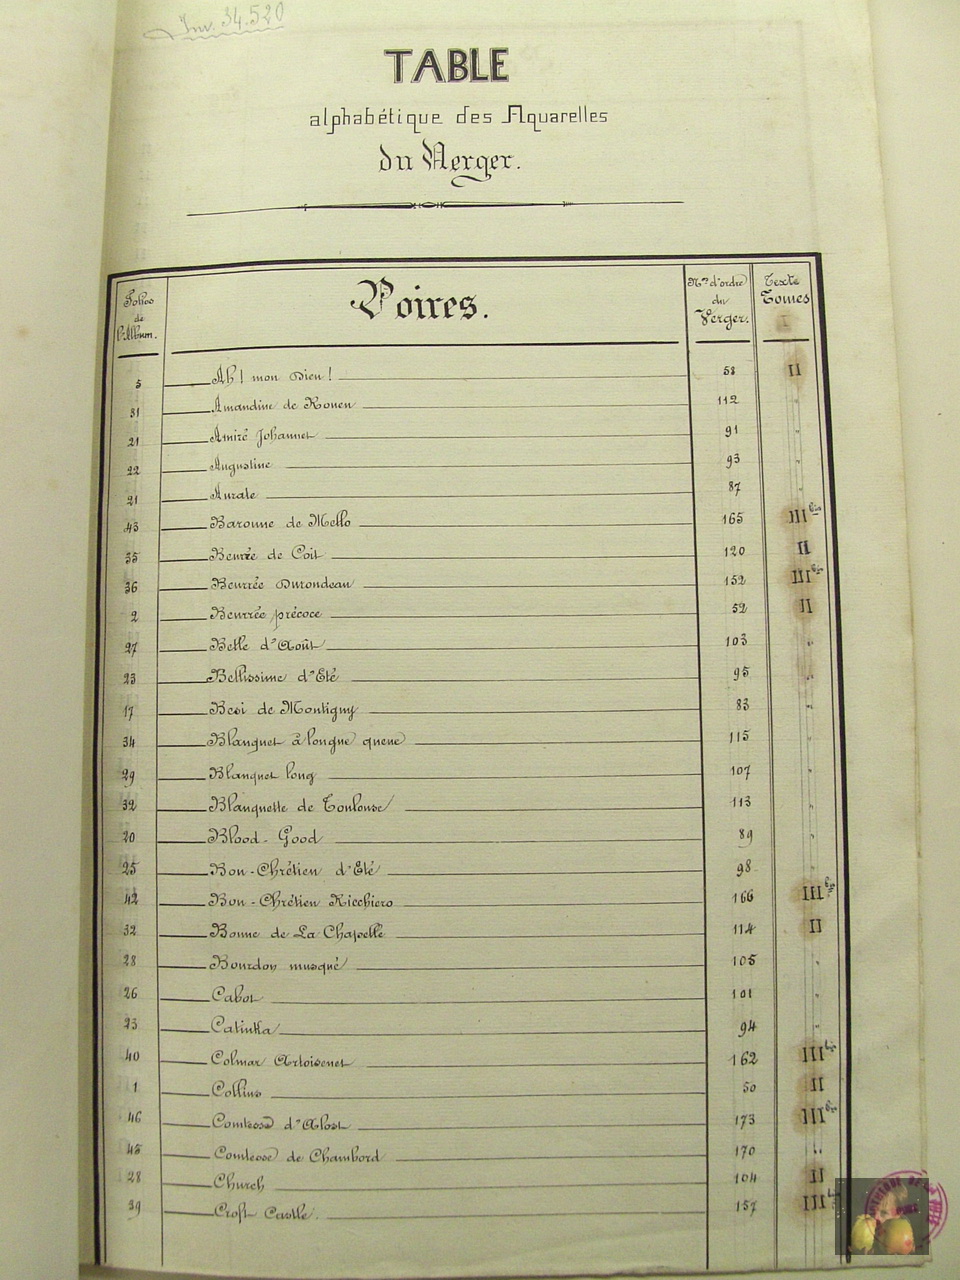 Inv. 34.520
TABLE
alphabétique des Aquarelles
du Verger.
Folios de l'Album. Poires. Nos d'ordre du Verger. Texte Tomes
5 Ah! mon Dieu! 58 II
31 Amandine de Rouen 112 "
21 Amiré Johannet 91 "
22 Augustine 93 "
21 Aurate 87 "
43 Baronne de Mello 165 III bis
35 Beurré de Coit 120 II
36 Beurrée Durondeau 152 III bis
2 Beurrée précoce 52 II
27 Belle d'Août 103 "
23 Bellissime d'Eté 95 "
17 Besi de Montigny 83 "
34 Blanquet à longue queue 115 "
29 Blanquet long 107 "
32 Blanquette de Toulouse 113 "
20 Blood-Good 89 "
25 Bon-Chrétien d'Eté 98 "
42 Bon-Chrétien Ricchiero 166 III bis
32 Bonne de La Chapelle 114 II
28 Bourdon musqué 105 "
26 Cabot 101 "
23 Catinka 94 "
40 Colmar Artoisenet 162 III bis
1 Collins 50 II
46 Comtesse d'Alost 173 III bis
45 Comtesse de Chambord 170 "
28 Church 104 II
39 Croft Castle. 157 III